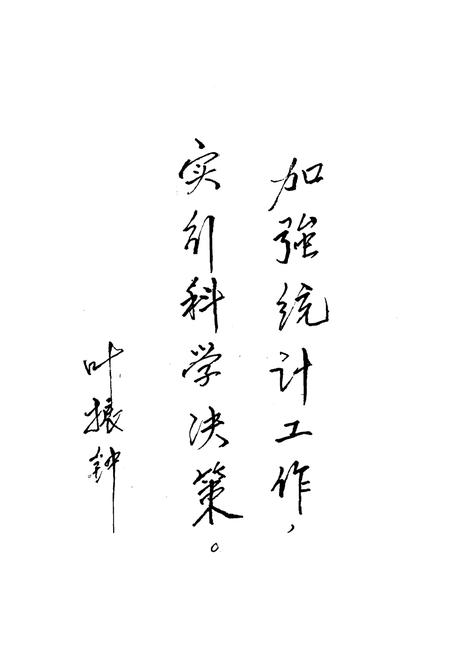 加強统计工作，
实行科学决策。
叶振钟